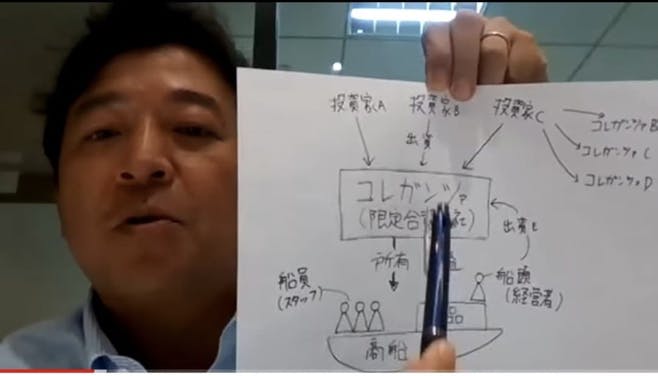 投資家A 投資家B 投資家C
コレガンツァB
コレガンツァC
コレガンツァD
出資
コレガンツァ
(限定合 社)
出資
所有
船員
(スタッフ)
船頭
(経営者)
商船